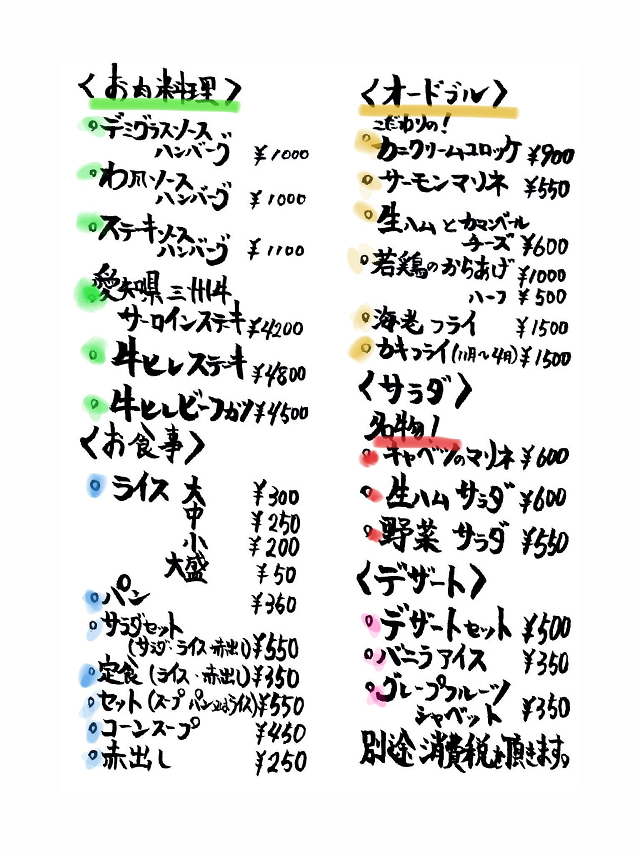 〈お肉料理〉
デミグラスソース
ハンバーグ ¥1000
わ風ソース
ハンバーグ ¥1000
ステーキソース
ハンバーグ ¥1100
愛知県三州牛
サーロインステーキ ¥4200
牛ヒレステーキ ¥4800
牛ヒレビーフカツ ¥4500
〈お食事〉
ライス 大 ¥300
中 ¥250
小 ¥200
大盛 ¥50
パン ¥360
サラダセット
(サラダ・ライス・赤出し) ¥550
定食(ライス・赤出し) ¥350
セット(スープ パン又はライス) ¥550
コーンスープ ¥450
赤出し ¥250
〈オードブル〉
こだわりの!
カニクリームコロッケ ¥900
サーモンマリネ ¥550
生ハムとカマンベール
チーズ ¥600
若鶏のからあげ ¥1000
ハーフ ¥500
海老フライ ¥1500
カキフライ(11月〜4月) ¥1500
〈サラダ〉
名物!
キャベツのマリネ ¥600
生ハムサラダ ¥600
野菜サラダ ¥550
〈デザート〉
デザートセット ¥500
バニラアイス ¥350
グレープフルーツ
シャベット ¥350
別途消費税を頂きます。